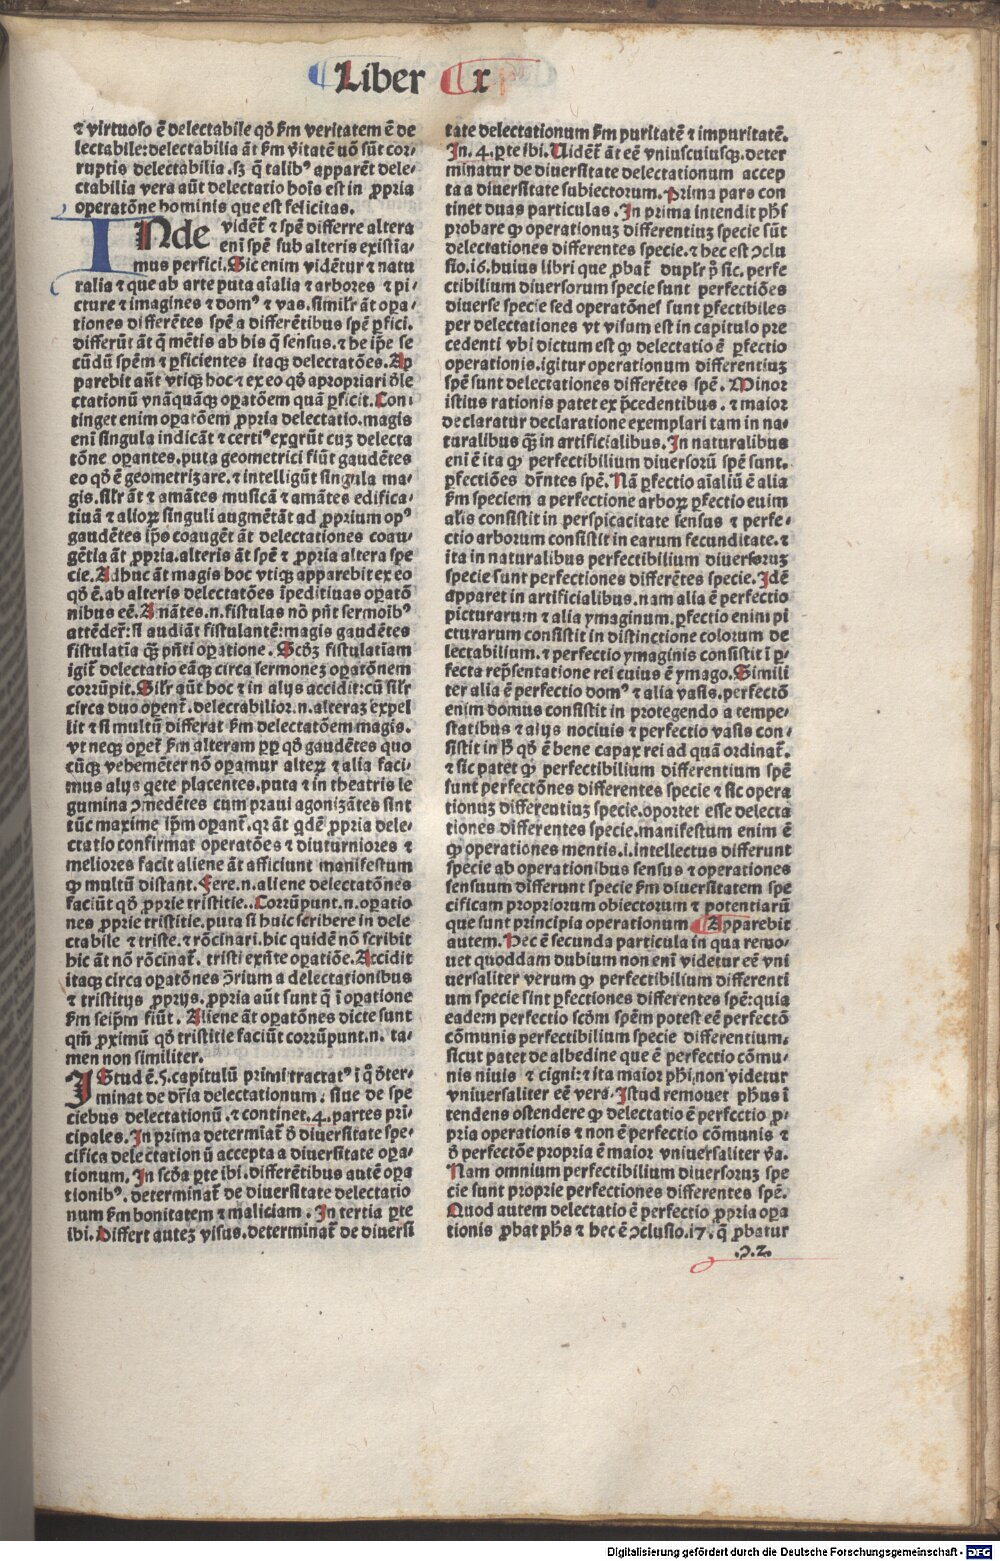 Liber x
⁊ virtuoso ē delectabile qđ ẜm veritatem ē de
lectabile: delectabilia āt ẜm v̄itatē uō sūt cor-
ruptis delectabilia .sꝫ q̄ talibꝰ apparēt dele-
ctabilia vera aūt delectatio hoīs est in ꝓpria
operatōne hominis que est felicitas.
INde vidēt̄ ⁊ spē differre altera
enī spē sub alteris existīa-
mus perfici. Sic enim vidētur ⁊ natu
ralia ⁊ que ab arte puta aīalia ⁊ arbores ⁊ pi-
cture ⁊ imagines ⁊ domꝰ ⁊ vas. similr̄ āt oꝑa-
tiones differētes spē a differētibus spē ꝑfici.
differūt āt q̄ mētis ab his q̄ sensus. ⁊ he ip̄e se
cūdū spēm ⁊ ꝑficientes itaqꝫ delectatōes. Ap
parebit aūt vtiqꝫ hoc ⁊ ex eo qđ apropriari dēle
ctationū vnāquāqꝫ oꝑatōem quam ꝑficit. Con-
tinget enim oꝑatōem ꝓpria delectatio. magis
enī singula indicāt ⁊ certiꝰ exqrūt cuꝫ delecta
tōne oꝑantes. puta geometrici fiūt gaudētes
eo qđ ē geometrizare. ⁊ intelligūt singula ma-
gis. silr̄ āt ⁊ amātes musicā ⁊ amātes edifica-
tiuā ⁊ alioꝝ singuli augmētāt ad ꝓprium opꝰ
gaudētes ip̄s coaugēt āt delectationes coau-
gētia āt ꝓpria. alteris āt spē ⁊ ꝓpria altera spe
cie. Adhuc āt magis hoc vtiqꝫ apparebit ex eo
qđ ē. ab alteris delectatōes īpeditiuas oꝑatō
nibus eē. Amātes .n. fistulas nō pn̄t sermoībꝰ
attēder̄: si audiāt fistulantē: magis gaudētes
fistulatīa qꝫ̄ pn̄ti oꝑatione. Scđꝫ fistulatīam
igit̄ delectatio eāqꝫ circa sermoneꝫ oꝑatōnem
corrūpit. Silr̄ aūt hoc ⁊ in alijs accidit: cū silr̄
circa duo oꝑent̄. delectabilior .n. alteraꝫ expel
lit ⁊ si multū differat ẜm delectatōem magis.
vt neqꝫ oꝑet̄ ẜm alteram ꝓp̄ qđ gaudētes quo
cūqꝫ vehemēter nō oꝑamur alteꝝ ⁊ alia faci-
mus alijs qete placentes. puta ⁊ in theatris le
gumina ꝯmedētes cum praui agonizātes sint
tūc maxime ip̄m oꝑant̄. qr āt qdē ꝓpria dele-
ctatio confirmat operatōes ⁊ diuturniores ⁊
meliores facit aliene āt afficiunt manifestum
ꝙ multū distant. Fere .n. aliene delectatōnes
faciūt qđ ꝓprie tristitie.. Corrūpunt .n. oꝑatio
nes ꝓprie tristitie. puta si huic scribere in dele
ctabile ⁊ triste. ⁊ rōcinari. hic quidē nō scribit
hic āt nō rōcinat̄. tristi exn̄te oꝑatiōe. Accidit
itaqꝫ circa oꝑatōnes ꝯ̄rium a delectationibus
⁊ tristitijs ꝓprijs. ꝓpria aūt sunt q̄ ī oꝑatione
ẜm seip̄m fiūt. Aliene āt oꝑatōnes dicte sunt
qm̄ ꝓximū qđ tristitie faciūt corrūpunt .n. ta-
men non similiter.
IStud ē .5. capitulū primi tractatꝰ ī q̄ đter-
minat de dr̄ia delectationum. siue de spe
ciebus delectationū. ⁊ continet .4. partes prī-
cipales. In prima determīat̄ đ diuersitate spe-
cifica delectationū accepta a diuersitate oꝑa-
tionum. In scđa ꝑte ibi. differētibus autē oꝑa
tionibꝰ. determinat̄ de diuersitate delectatio
num ẜm bonitatem ⁊ maliciam. In tertia ꝑte
ibi. Differt auteꝫ visus. determinat̄ de diuersi
tate delectationum ẜm puritatē ⁊ impuritatē.
In .4. ꝑte ibi. Uidēt̄ āt eē vniuscuiusqꝫ. deter
minatur de diuersitate delectationum accep
ta a diuersitate subiectorum. Prima pars con
tinet duas particulas. In prima intendit ph̄s
probare ꝙ operationuꝫ differentiuꝫ specie sūt
delectationes differentes specie. ⁊ hec est ꝯclu
sio .16. huius libri que ꝓbat̄ duplr̄ p̄ sic. perfe
ctibilium diuersorum specie sunt perfectiōes
diuerse specie sed operatōnes sunt ꝑfectibiles
per delectationes vt visum est in capitulo pre
cedenti vbi dictum est ꝙ delectatio ē ꝑfectio
operationis. igitur operationum differentiuꝫ
spē sunt delectationes differētes spē. Minor
istius rationis patet ex p̄cedentibus. ⁊ maior
declaratur declaratione exemplari tam in na-
turalibus qꝫ̄ in artificialibus. In naturalibus
enī ē ita ꝙ perfectibilium diuersorū spē sunt.
ꝑfectiōes dr̄ntes spē. Nā ꝑfectio aīaliū ē alia
ẜm speciem a perfectione arboꝝ ꝑfectio enim
al̄is consistit in perspicacitate sensus ⁊ perfe-
ctio arborum consistit in earum fecunditate. ⁊
ita in naturalibus perfectibilium diuersoruꝫ
specie sunt perfectiones differētes specie. Idē
apparet in artificialibus. nam alia ē perfectio
picturarum ⁊ alia ymaginum. ꝑfectio enim pi
cturarum consistit in distinctione colorum de
lectabilium. ⁊ perfectio ymaginis consistit ī ꝑ-
fecta repn̄satione rei cuius ē ymago. Simili
ter alia ē perfectio domꝰ ⁊ alia vasis. perfectō
enim domus consistit in protegendo a tempe-
statibus ⁊ alijs nociuis ⁊ perfectio vasis con-
sistit in ꜧ̄ qđ ē bene capax rei ad quā ordinat̄.
⁊ sic patet ꝙ perfectibilium differentium spē
sunt perfectōnes differentes specie ⁊ sic opera
tionuꝫ differentiuꝫ specie. oportet esse delecta
tiones differentes specie. manifestum enim ē
ꝙ operationes mentis .i. intellectus differunt
specie ab operationibus sensus ⁊ operationes
sensuum differunt specie ẜm diuersitatem spe
cificam propriorum obiectorum ⁊ potentiarū
que sunt principia operationum ¶ Apparebit
autem. Hec ē secunda particula in qua remo-
uet quoddam dubium non enī videtur eē vni
uersaliter verum ꝙ perfectibilium differenti
um specie sint ꝑfectiones differentes spē: quia
eadem perfectio scđm spēm potest eē perfectō
cōmunis perfectibilium specie differentium.
sicut patet de albedine que ē perfectio cōmu-
nis niuis ⁊ cigni: ⁊ ita maior ph̄i non videtur
vniuersaliter eē vera. Istud remouet ph̄us ī
tendens ostendere ꝙ delectatio ē perfectio ꝓ-
pria operationis ⁊ non ē perfectio cōmunis ⁊
đ perfectōe propria ē maior vniuersaliter v̄a.
Nam omnium perfectibilium diuersoruꝫ spe
cie sunt proprie perfectiones differentes spē.
Quod autem delectatio ē perfectio ꝓpria oꝑa
tionis ꝓbat ph̄s ⁊ hec ē ꝯclusio .17. q̄ ꝓbatur
.ꝯ.2.
Digitalisierung gefördert durch die Deutsche Forschungsgemeinschaft - DFG